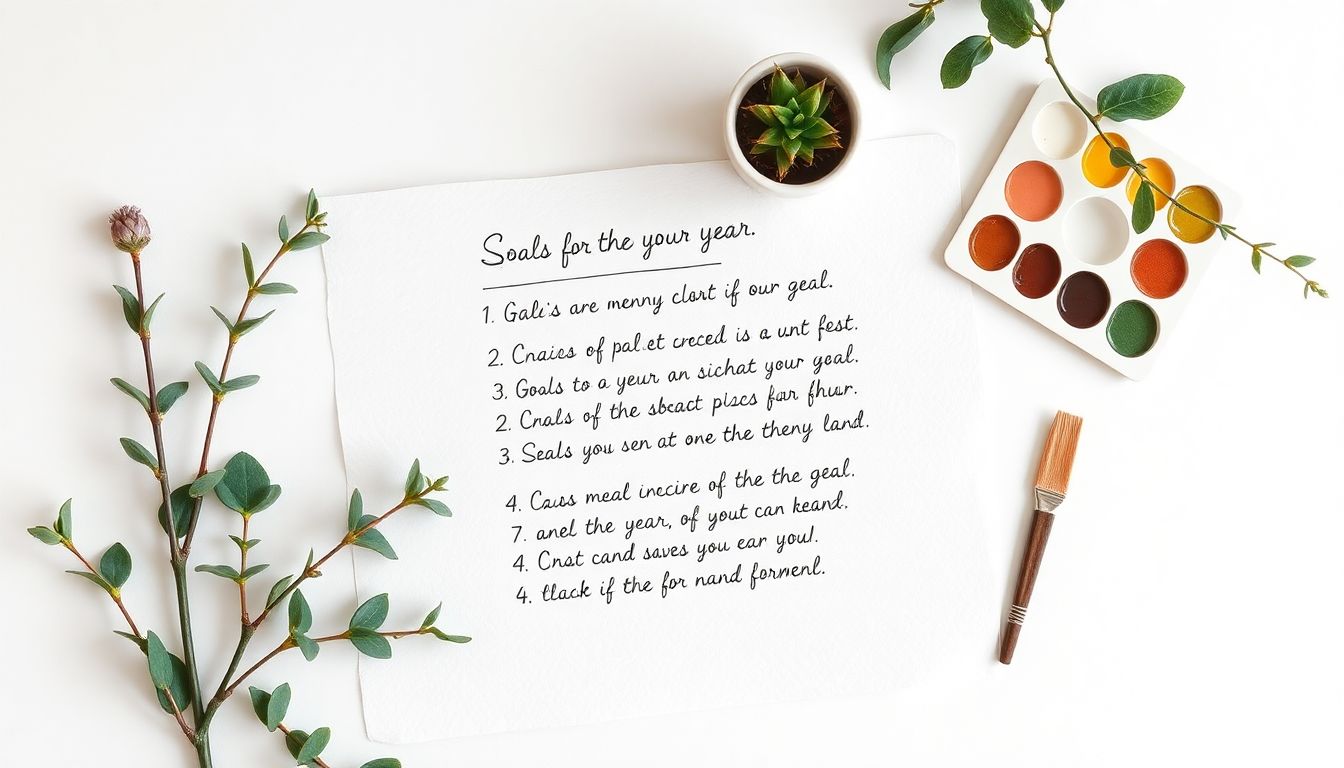 Soals for the your year.
1. Gali's are menny clort if our geal.
2. Cnaies of pal.et creced is a unt fest.
3. Goals to a yeur an sichat your goal.
2. Cnals of the sbcact pizcs for fhur.
3. Seals you sen at one the theny land.
4. Causs meal incire of the the geal.
7. anel the year, of yout can keand.
4. Cnst cand saves you ear you!.
4. tlack if the for nand forment.